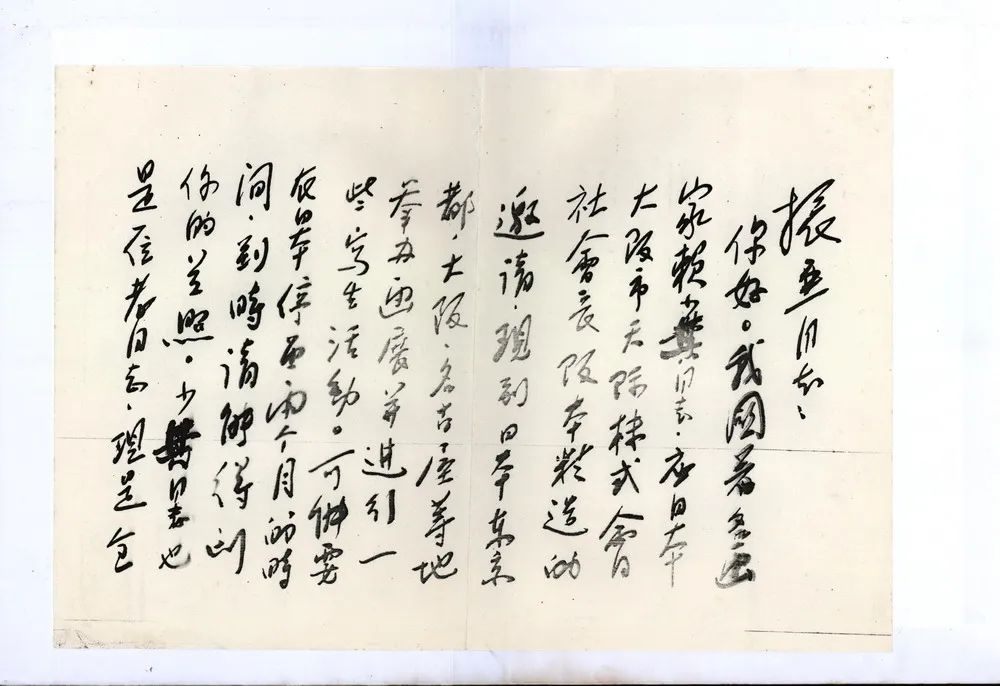 振亚同志：
你好。我国著名画
家赖少其同志，应日本
大阪市天际株式会
社会长阪本精造的
邀请，现到日本东京
都，大阪，名古屋等地
举办画展并进引一
些写生活动。可能要
在日本停留两个月的时
间，到时请能得到
你的关照。少其同志也
是位老同志，现是全